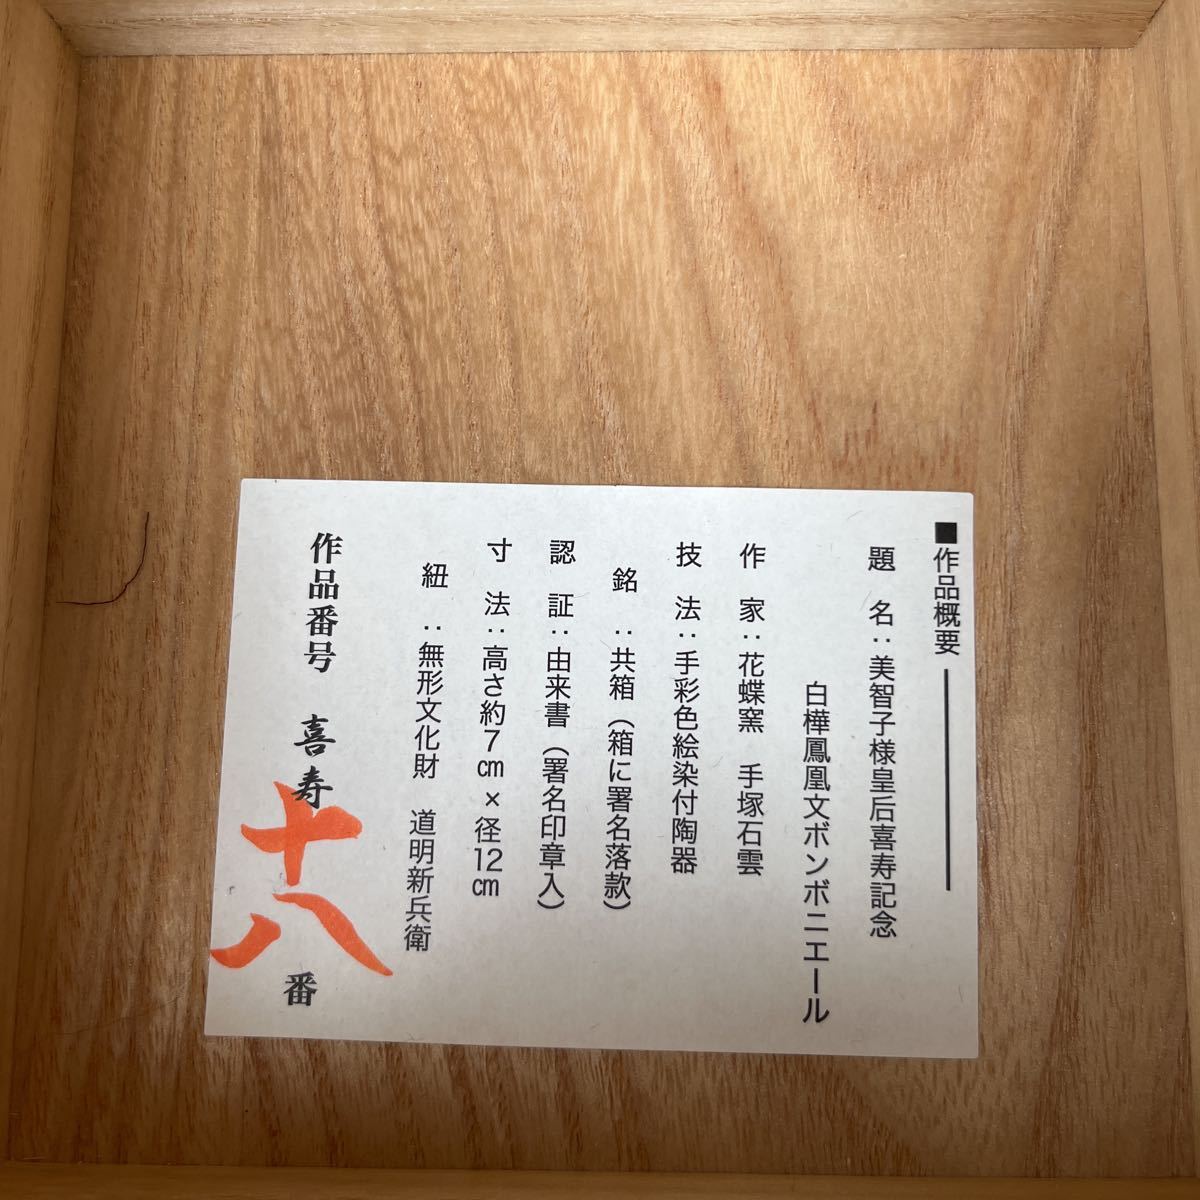 ■作品概要
題名：美智子様皇后喜寿記念
白樺鳳凰文ボンボニエール
作家：花蝶窯　手塚石雲
技法：手彩色絵染付陶器
銘：共箱（箱に署名落款）
認証：由来書（署名印章入）
寸法：高さ約7㎝×径12㎝
紐：無形文化財　道明新兵衛
作品番号　喜寿十八番